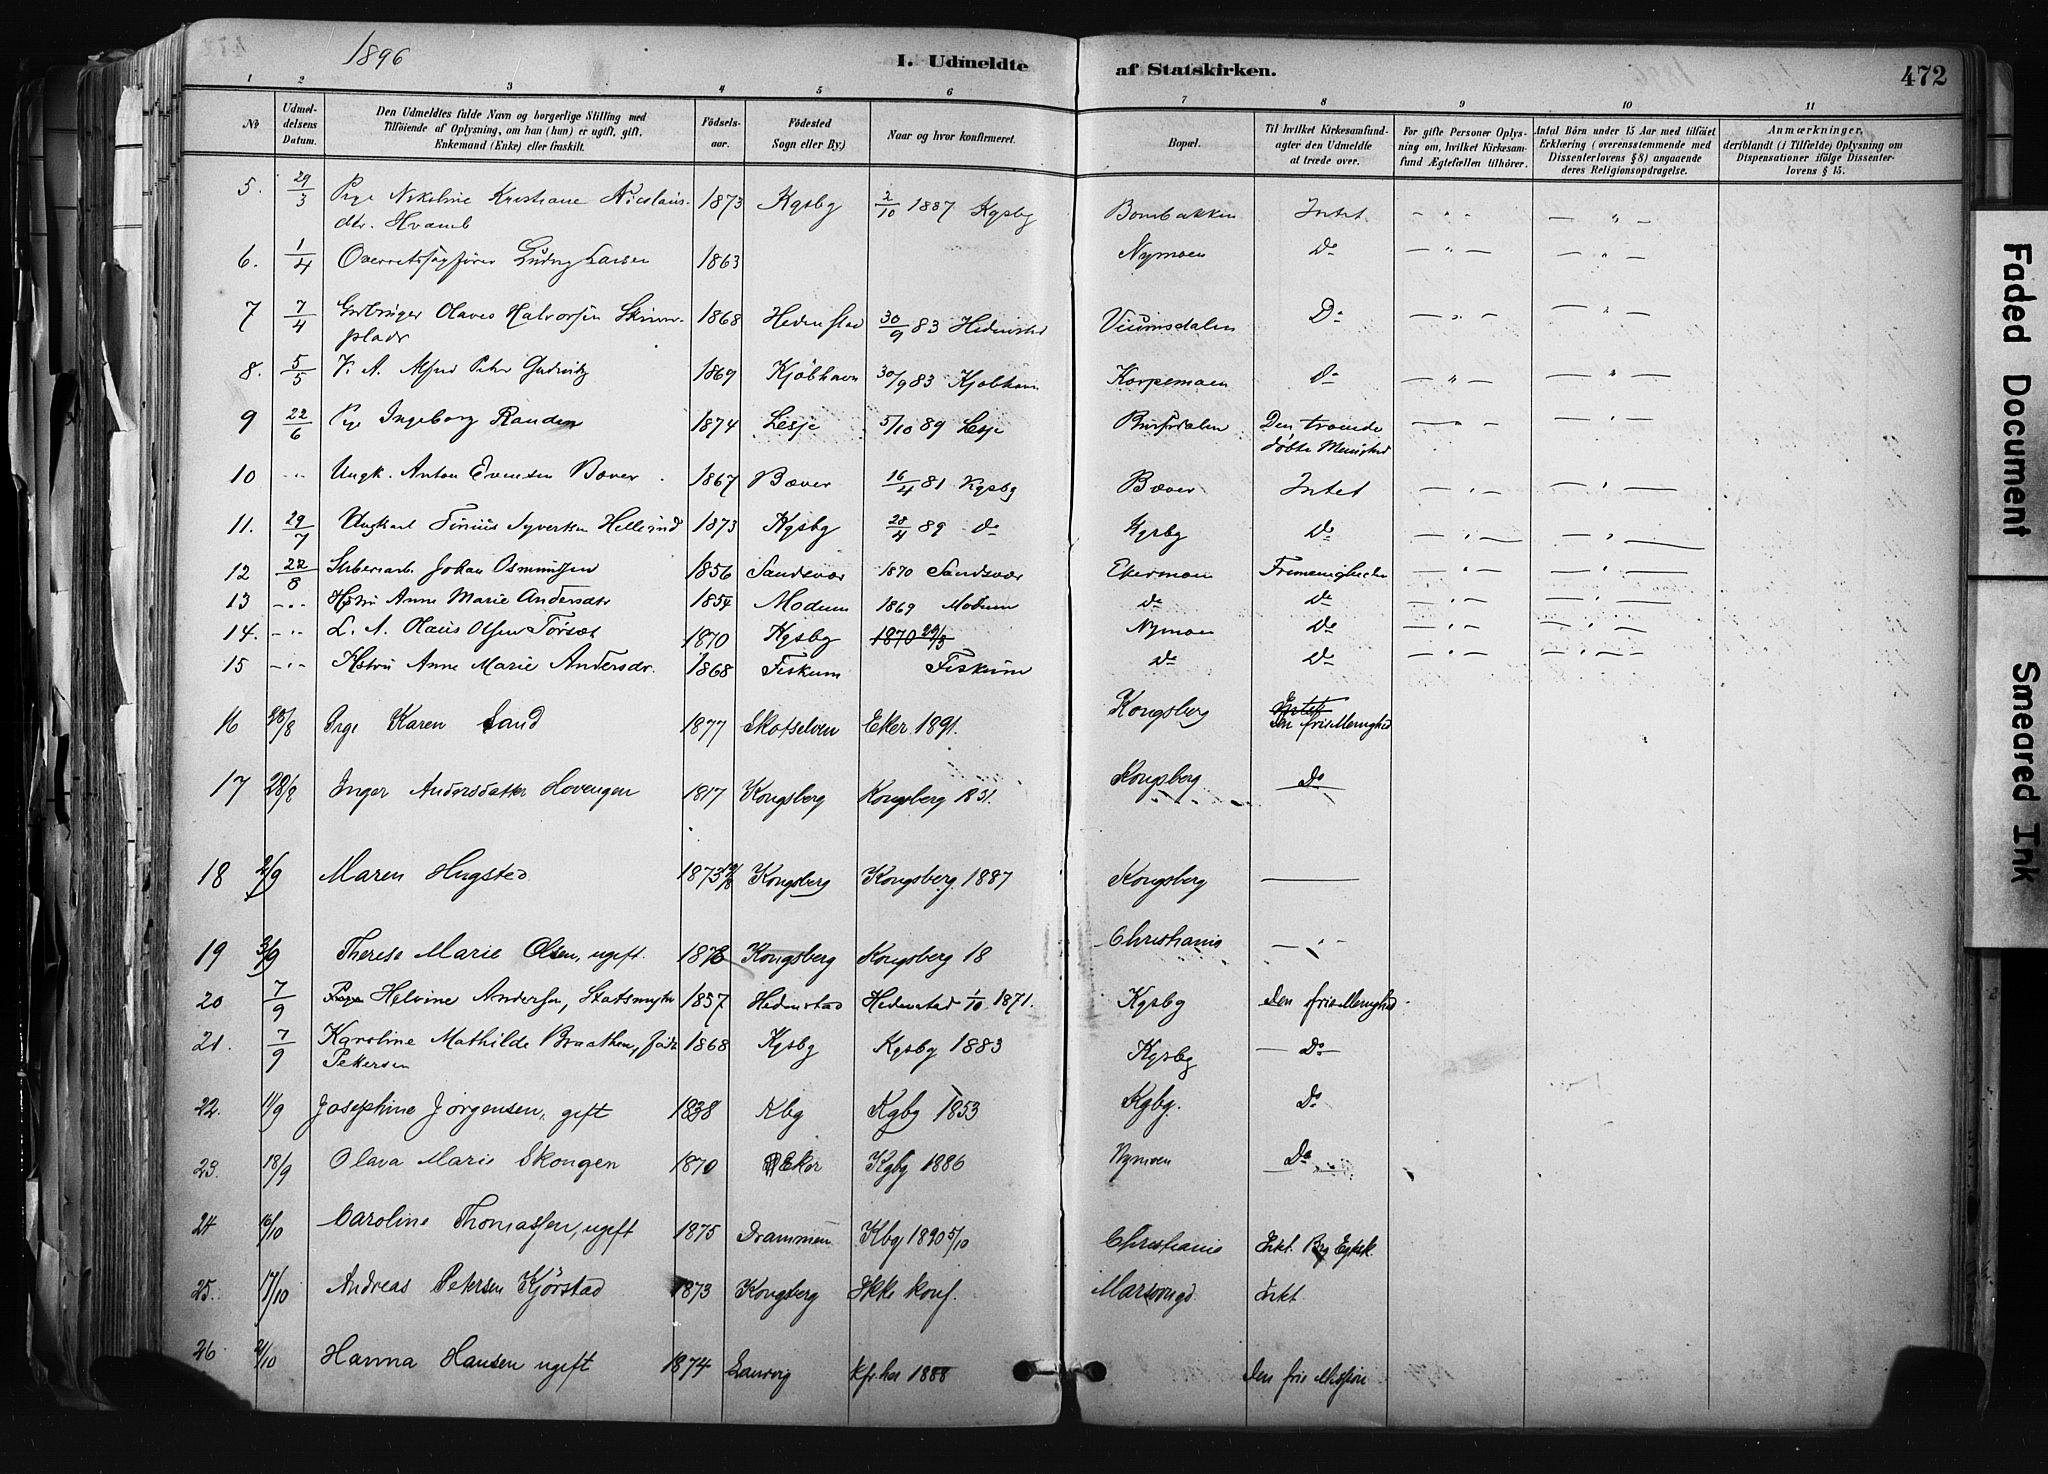 1896
I. Udmeldte af Statskirken.
472
1 2 3 4 5 6 7 8 9 10 11
No
Udmeldelsens Datum.
Den Udmeldtes fulde Navn og borgerlige Stilling med Tilføiende af Oplysning, om han (hun) er ugift, gift, Enkemand (Enke) eller fraskilt.
Fødselsaar.
Fødested Sogn eller By.)
Naar og hvor konfirmeret.
Bopæl.
Til hvilket Kirkesamfund agter den Udmeldte at træde over.
For gifte Personer Oplysning om, hvilket Kirkesamfund Ægtefællen tilhører.
Antal Børn under 15 Aar med tilføiet Erklæring (overensstemmende med Dissenterlovens § 8) angaaende deres Religionsopdragelse.
Anmærkninger, deriblandt (i Tilfælde) Oplysning om Dispensationer ifølge Dissenterlovens § 15.
5. 29/3 Pige Nikoline Kristiane Nicolaisdtr. Hvamb 1873 Kgsbg 2/10 1887 Kgsbg Bombakken Intet — " — — " —
6. 1/4 Overretssagfører Ludvig Larsen 1863 Nymoen Do — " — — " —
7 7/4 Olaves Halvorsen 1868 Hedenstad 30/9 83 Hedenstad Do — " — — " —
8. 5/5 Alfred Peter 1869 Kjøbhavn 30/9 83 Kjøbhavn Korpemoen Do — " — — " —
9 22/6 Pige Ingeborg Randen 1874 Lesje 5/10 89 Lesje Den troende døbte Menighed — " — — " —
10 - " - Ungk. Anton Evensen Bæver 1867 Bæver 16/4 81 Kgsbg Bæver Intet — " — — " —
11. 29/7 Ungkarl Syvertsen 1873 Kgsbg 28/4 89 do Kgsbg Do — " — — " —
12 22/8 Johan Osmundsen 1856 Sandsvær 1870 Sandsvær Ekermoen — " — — " —
13 - " - Hstru Anne Marie Andersdtr 1854 Modum 1869 Modum do do — " — — " —
14. - " - L. A. Olaus Olsen 1870 Kgsbg 1870 29/3 Nymoen Do — " — — " —
15 - " - Hstru Anne Marie Andersdr. 1868 Fiskum Fiskum do Do — " — — " —
16 28/8 Pige Karen Sand 1877 Skotselven Eker 1891. Kongsberg Intet Den frie Menighed
17 28/8 Inger Andersdatter Hovengen 1817 Kongsberg Kongsberg 1831. Kongsberg Do
18 2/9 Maren Hugsted 1873 Kongsberg Kongsberg 1887 Kongsberg —
19 3/9 Therese Marie Olsen, ugift. Kongsberg Kongsberg 18 Christiania — " —
20 7/9 Pige Helvine Andersen, 1857 Hedenstad Hedenstad 1/10 1871. Kgsbg Den frie Menighed
21. 7/9 Karoline Mathilde Braathen, født Petersen 1868 Kgsbg Kgsbg 1883 Kgsbg — Do
22. 11/9 Josephine Jørgensen, gift 1838 Kbg Kgbg 1853 Kgbg. Do
23. 18/9 Olava Marie Skougen 1870 Eker Kgbg 1886 Nymoen Do
24 16/10 Caroline Thomassen, ugift 1875 Drammen Kbg 1890 5/10 Christiania
25. 17/10 Andreas Petersen Kjørstad 1873 Kongsberg Ikke konf. Intet
26 21/10 Hanna Hansen ugift 1874 Laurvig 1888 Den frie Mission
Faded Document
Smeared Ink